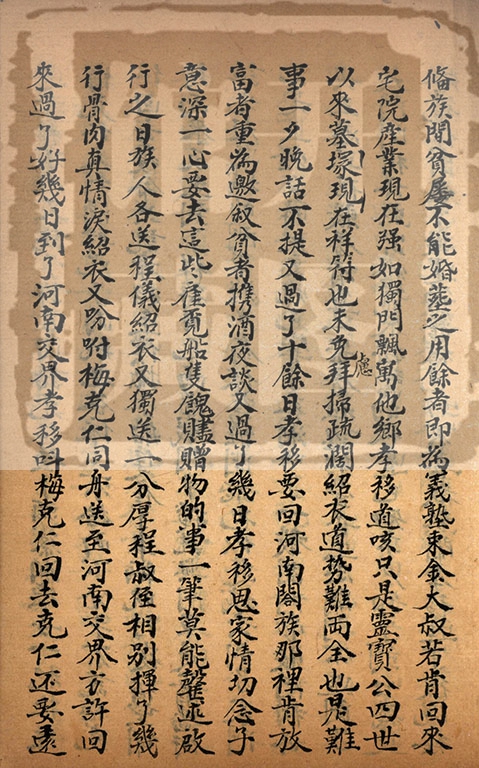 備族間貧屢不能婚葬之用餘者即為義塾束金大叔若肯回來
宅院産業現在强如獨門飄蕩他鄉孝移道咳只是靈寳公四世
以來墓塚現在祥符也未免拜掃疏濶紹衣道勢難両全也是難
慮
事一夕晚話不提又過了十餘日孝移要回河南閤族那裡肯放
富者重為邀叙貧者携酒夜談又過了幾日孝移思家情切念子
意深一心要去這些雇覓船隻餽贐贈物的事一筆莫能罄述啟
行之日族人各送程儀紹衣又獨送一分厚程叔侄相别揮了幾
行骨肉真情淚紹衣又吩咐梅克仁同舟送至河南交界方許回
來過了好幾日到了河南交界孝移叫梅克仁回去克仁还要遠